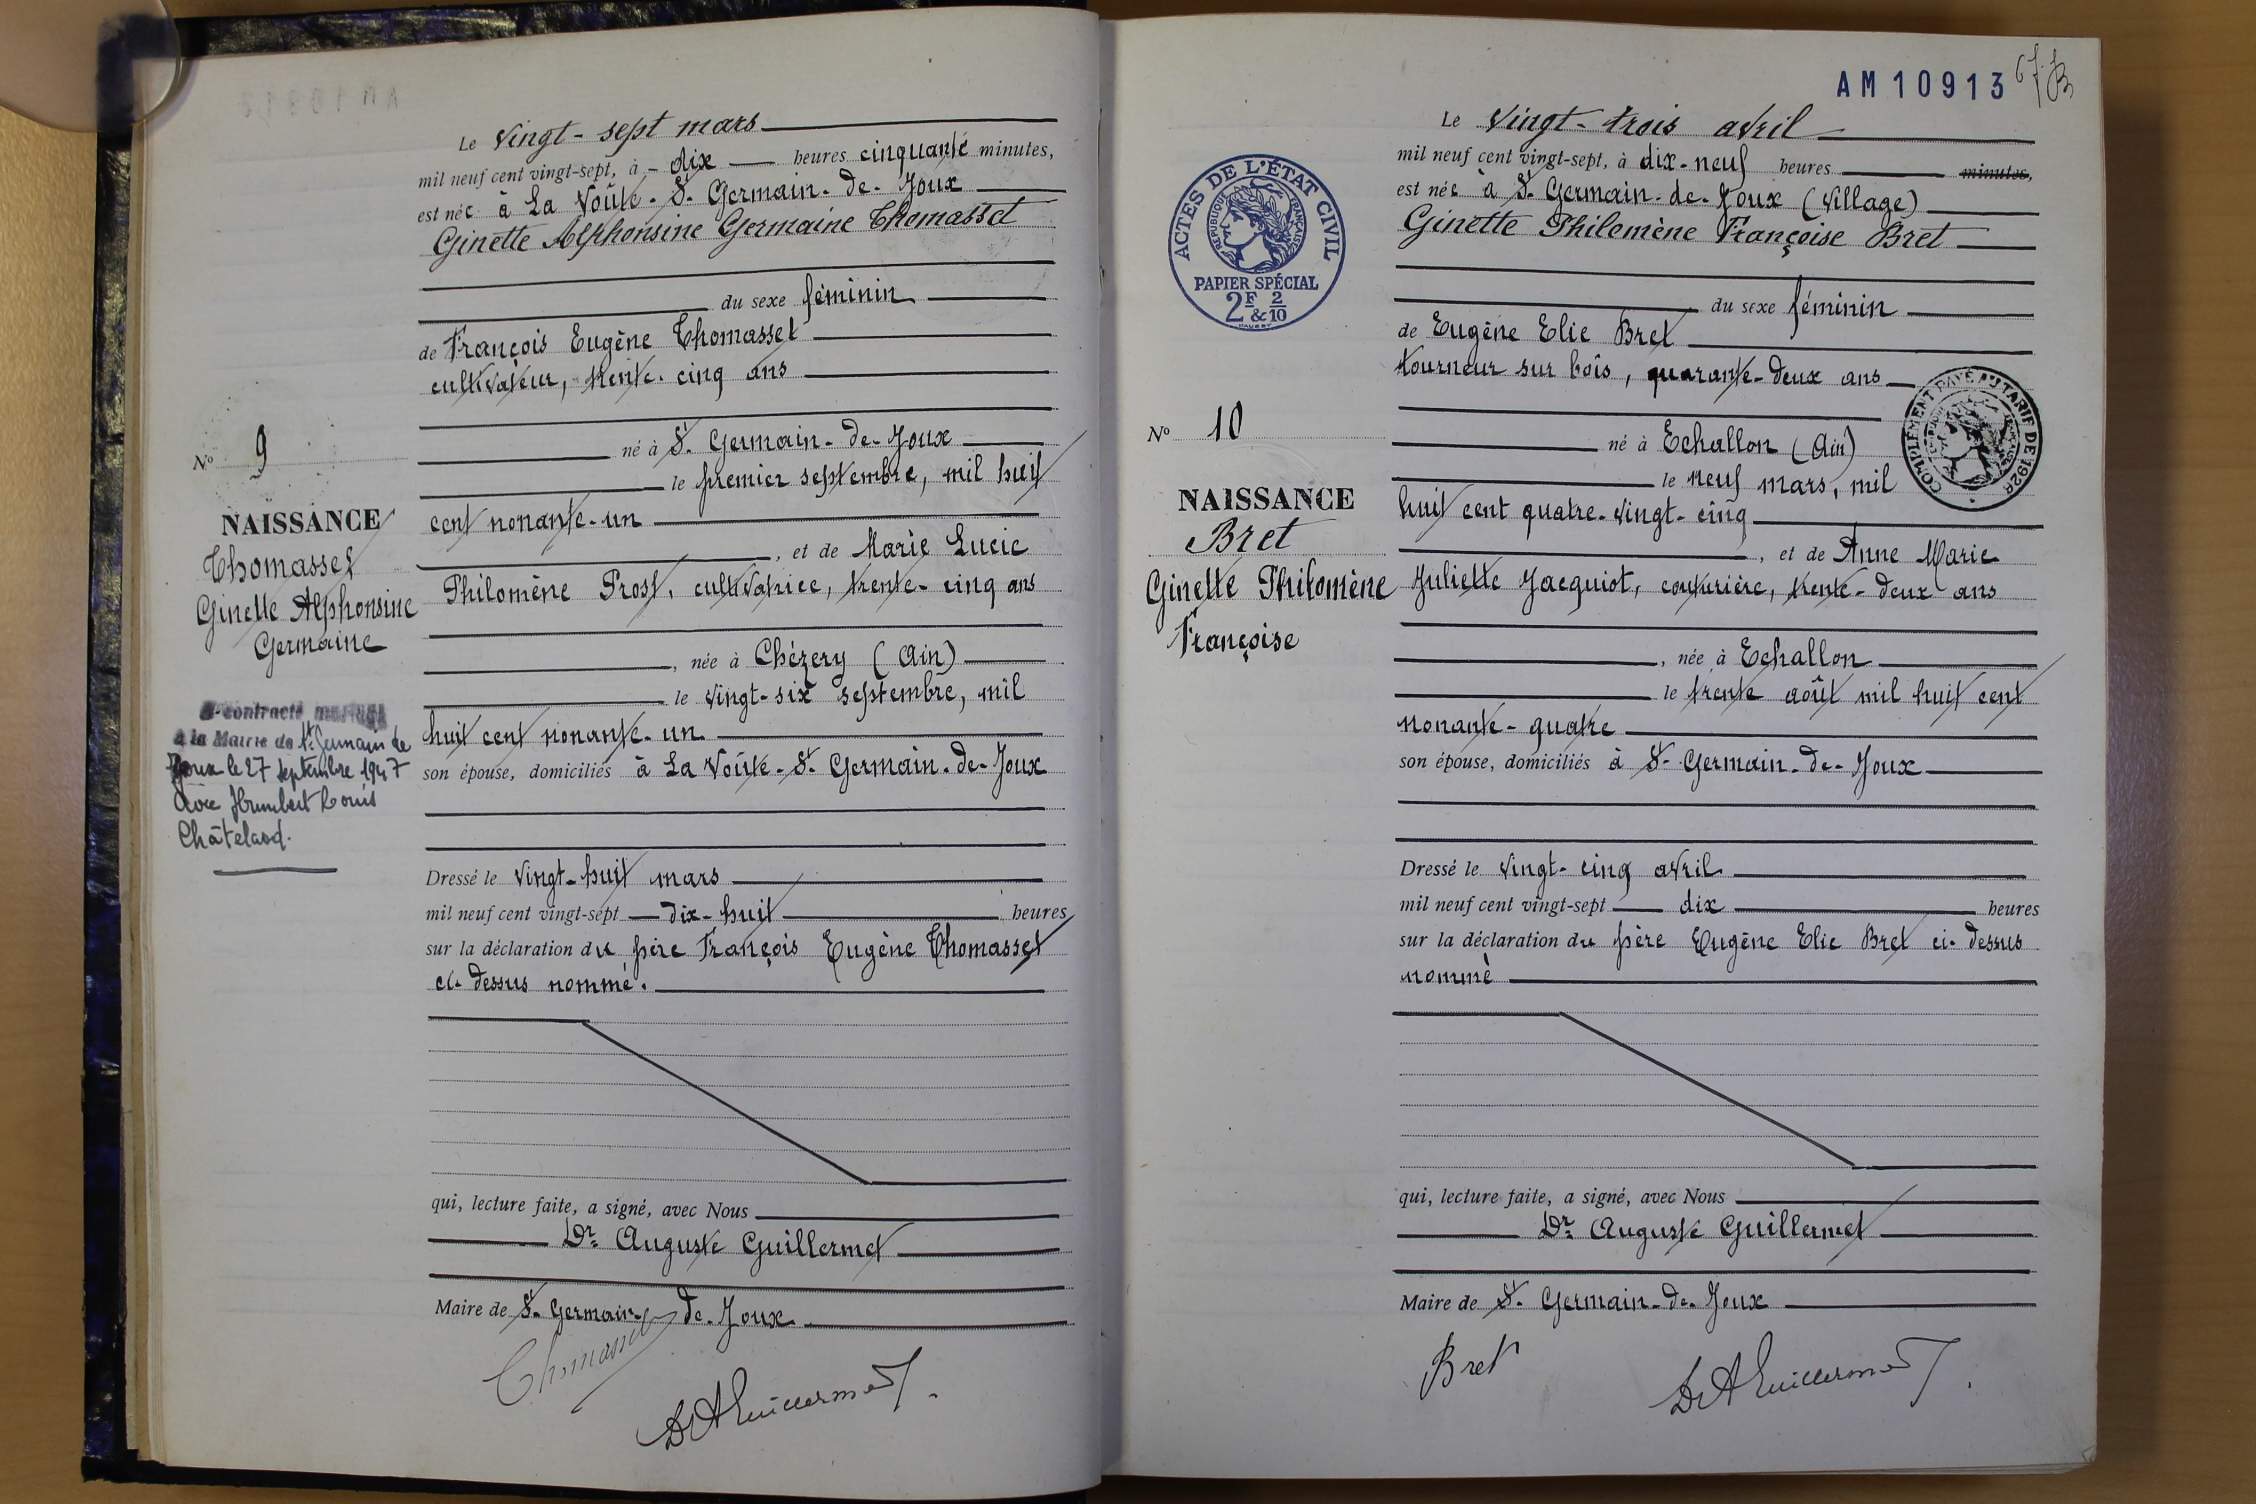 Le Vingt-sept mars
mil neuf cent vingt-sept, à - dix heures cinquante minutes,
est née à La Voûte-St Germain-de-Joux
Ginette Alphonsine Germaine Thomasset
du sexe féminin
de François Eugène Thomasset
cultivateur, trente-cinq ans
né à St Germain-de-Joux
le premier septembre, mil huit
cent nonante-un
, et de Marie Lucie
Philomène Prost, cultivatrice, trente-cinq ans
, née à Chézery (Ain)
le vingt-six septembre, mil
huit cent nonante-un
son épouse, domiciliés à La Voûte-St Germain-de-Joux
Dressé le vingt-huit mars
mil neuf cent vingt-sept dix-huit heures
sur la déclaration du père François Eugène Thomasset
ci-dessus nommé.
qui, lecture faite, a signé, avec Nous
Dr Auguste Guillermet
Maire de St Germain-de-Joux
Thomasset
Dr A Guillermet
No 9
NAISSANCE
Thomasset
Ginette Alphonsine
Germaine
A contracté mariage
à la Mairie de St Germain de
Joux le 27 septembre 1947
avec Humbert Louis
Châtelard.
AM 10913
Le Vingt-trois avril
mil neuf cent vingt-sept, à dix-neuf heures minutes,
est née à St Germain-de-Joux (Village)
Ginette Philomène Françoise Bret
du sexe féminin
de Eugène Elie Bret
tourneur sur bois, quarante-deux ans
né à Echallon (Ain)
le neuf mars, mil
huit cent quatre-vingt-cinq
, et de Anne Marie
Juliette Jacquiot, couturière, trente-deux ans
, née à Echallon
le trente août mil huit cent
nonante-quatre
son épouse, domiciliés à St Germain-de-Joux
Dressé le vingt-cinq avril
mil neuf cent vingt-sept dix heures
sur la déclaration du père Eugène Elie Bret ci-dessus
nommé
qui, lecture faite, a signé, avec Nous
Dr Auguste Guillermet
Maire de St Germain-de-Joux
Bret
Dr A Guillermet
ACTES DE L'ÉTAT CIVIL
RÉPUBLIQUE FRANÇAISE
PAPIER SPÉCIAL
2F & 2/10
No 10
NAISSANCE
Bret
Ginette Philomène
Françoise
COMPLÉMENT PAYÉ AU TARIF DE 1926